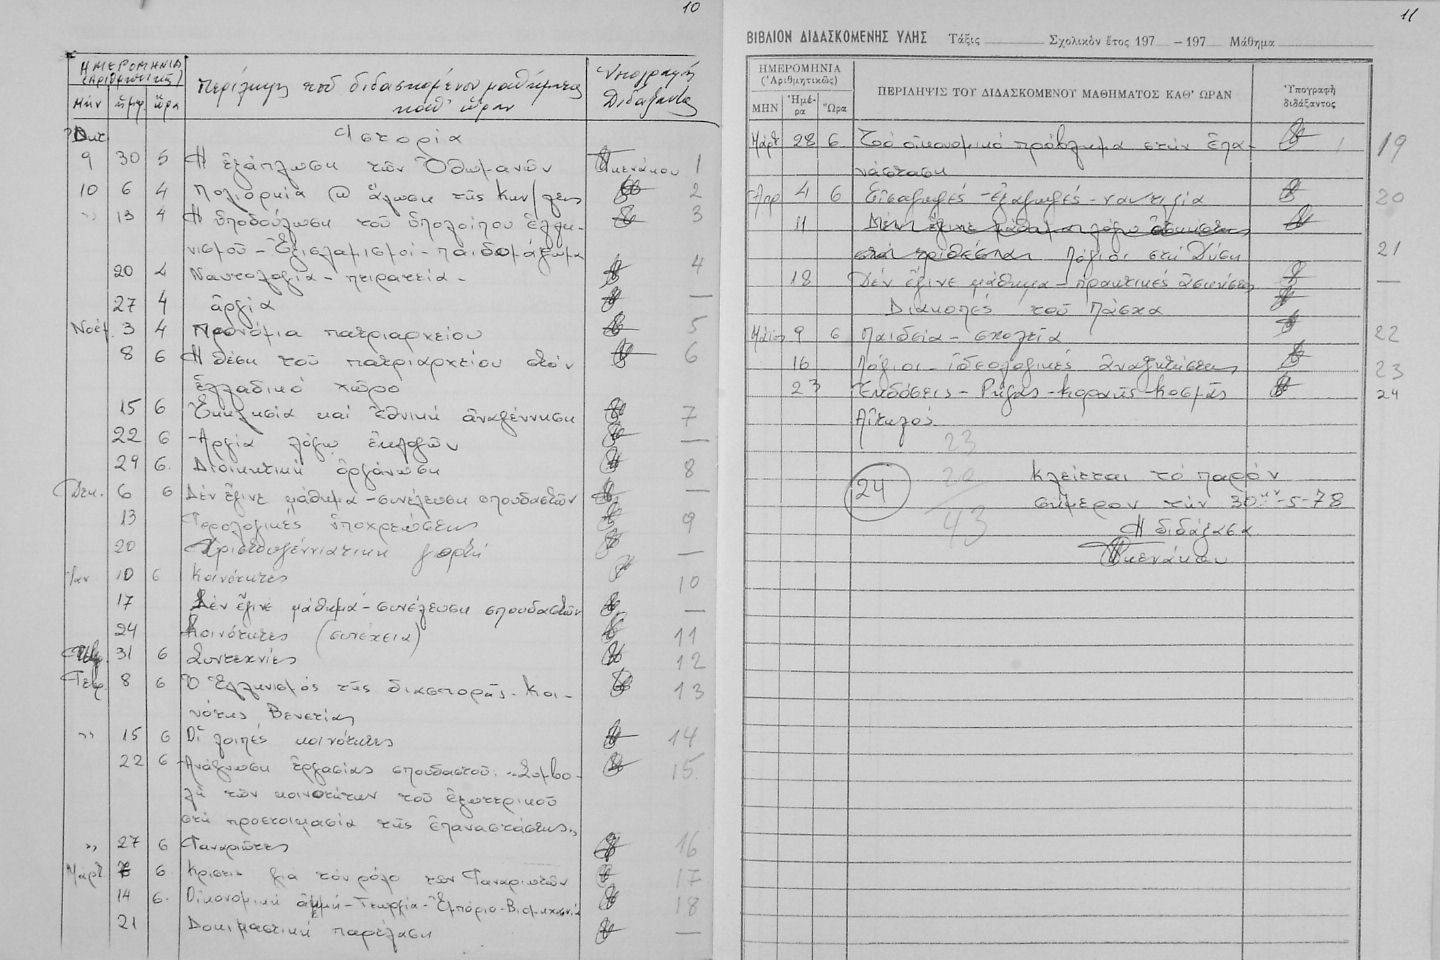 10
ΗΜΕΡΟΜΗΝΙΑ
(Ἀριθμητικῶς)
Μήν ἡμέρ ὥρα
Περίληψη τοῦ διδασκομένου μαθήματος
καθ' ὥραν
Ὑπογραφή
Διδάξαντος
Ἱστορία
9 30 5 Ἡ ἐξάπλωση τῶν Ὀθωμανῶν 1
10 6 4 Πολιορκία ἅλωση τῆς Κων/λεως 2
" 13 4 Ἡ ὑποδούλωση τοῦ ὑπολοίπου ἑλλη- 3
νισμοῦ - Ἐξισλαμισμοί - παιδομάζωμα
20 4 Ναυτολογία - πειρατεία - 4
27 4 ἀργία —
Νοέμ. 3 4 Προνόμια πατριαρχείου 5
8 6 Ἡ θέση τοῦ πατριαρχείου στόν 6
ἑλλαδικό χῶρο
15 6 Ἐκκλησία καί ἐθνική ἀναγέννηση 7
22 6 Ἀργία λόγω ἐκλογῶν —
29 6. Διοικητική ὀργάνωση 8
Δεκ. 6 6 Δέν ἔγινε μάθημα - συνέλευση σπουδαστῶν —
13 Φορολογικές ὑποχρεώσεις 9
20 Χριστουγεννιάτικη γιορτή —
Ἰαν 10 6 Κοινότητες 10
17 Δέν ἔγινε μάθημα - συνέλευση σπουδαστῶν —
24 Κοινότητες (συνέχεια) 11
31 6 Συντεχνίες 12
Φεβρ 8 6 Ὁ Ἑλληνισμός τῆς διασπορᾶς - Κοι- 13
νότης Βενετίας
" 15 6 Οἱ λοιπές κοινότητες 14
22 6 Ἀνάγνωση ἐργασίας σπουδαστοῦ: "Συμβο- 15.
λή τῶν κοινοτήτων τοῦ ἐξωτερικοῦ
στή προετοιμασία τῆς ἐπαναστάσεως"
" 27 6 Φαναριῶτες 16
Μάρτ 7 6 Κρίσεις για τόν ρόλο τῶν Φαναριωτῶν 17
14 6. Οἰκονομική ἀκμή - Γεωργία - Ἐμπόριο - Βιομηχανία 18
21 Δοκιμαστική παρέλαση —
11
ΒΙΒΛΙΟΝ ΔΙΔΑΣΚΟΜΕΝΗΣ ΥΛΗΣ Τάξις Σχολικὸν ἔτος 197 –197 Μάθημα
ΗΜΕΡΟΜΗΝΙΑ
(Ἀριθμητικῶς)
ΜΗΝ Ἡμέρα Ὥρα
ΠΕΡΙΛΗΨΙΣ ΤΟΥ ΔΙΔΑΣΚΟΜΕΝΟΥ ΜΑΘΗΜΑΤΟΣ ΚΑΘ' ΩΡΑΝ
Ὑπογραφή
διδάξαντος
Μάρτ 28 6 Τό οἰκονομικό πρόβλημα στήν ἐπα- 19
νάσταση
Ἀπρ 4 6 Εἰσαγωγές - ἐξαγωγές - ναυτιλία 20
11 Δέν ἔγινε μάθημα λόγω
Λόγιοι στή Δύση 21
18 Δέν ἔγινε μάθημα - πρακτικές ἀσκήσεις —
Διακοπές τοῦ Πάσχα
Μάϊος 9 6 Παιδεία - σχολεῖα 22
16 Λόγιοι - ἰδεολογικές ἀναζητήσεις 23
23 Ἐκδόσεις - Ρήγας - Κοραῆς - Κοσμᾶς 24
Αἰτωλός.
23
20
43
24
Κλείεται τό παρόν
σήμερον τήν 30ην-5-78
Ἡ διδάξασα